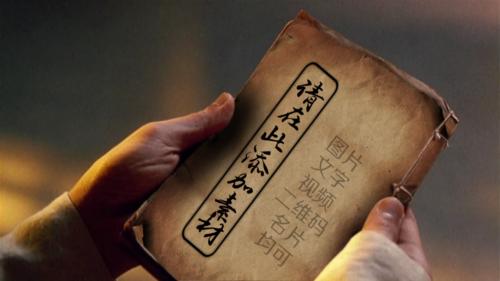 请在此添加素材
图片
文字
视频
二维码
名片
均可